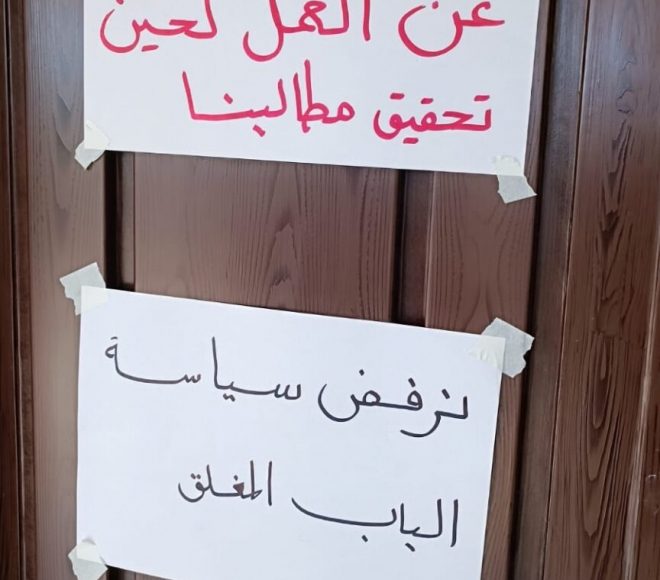 عن العمل لحين
تحقيق مطالبنا
نرفض سياسة
الباب المغلق